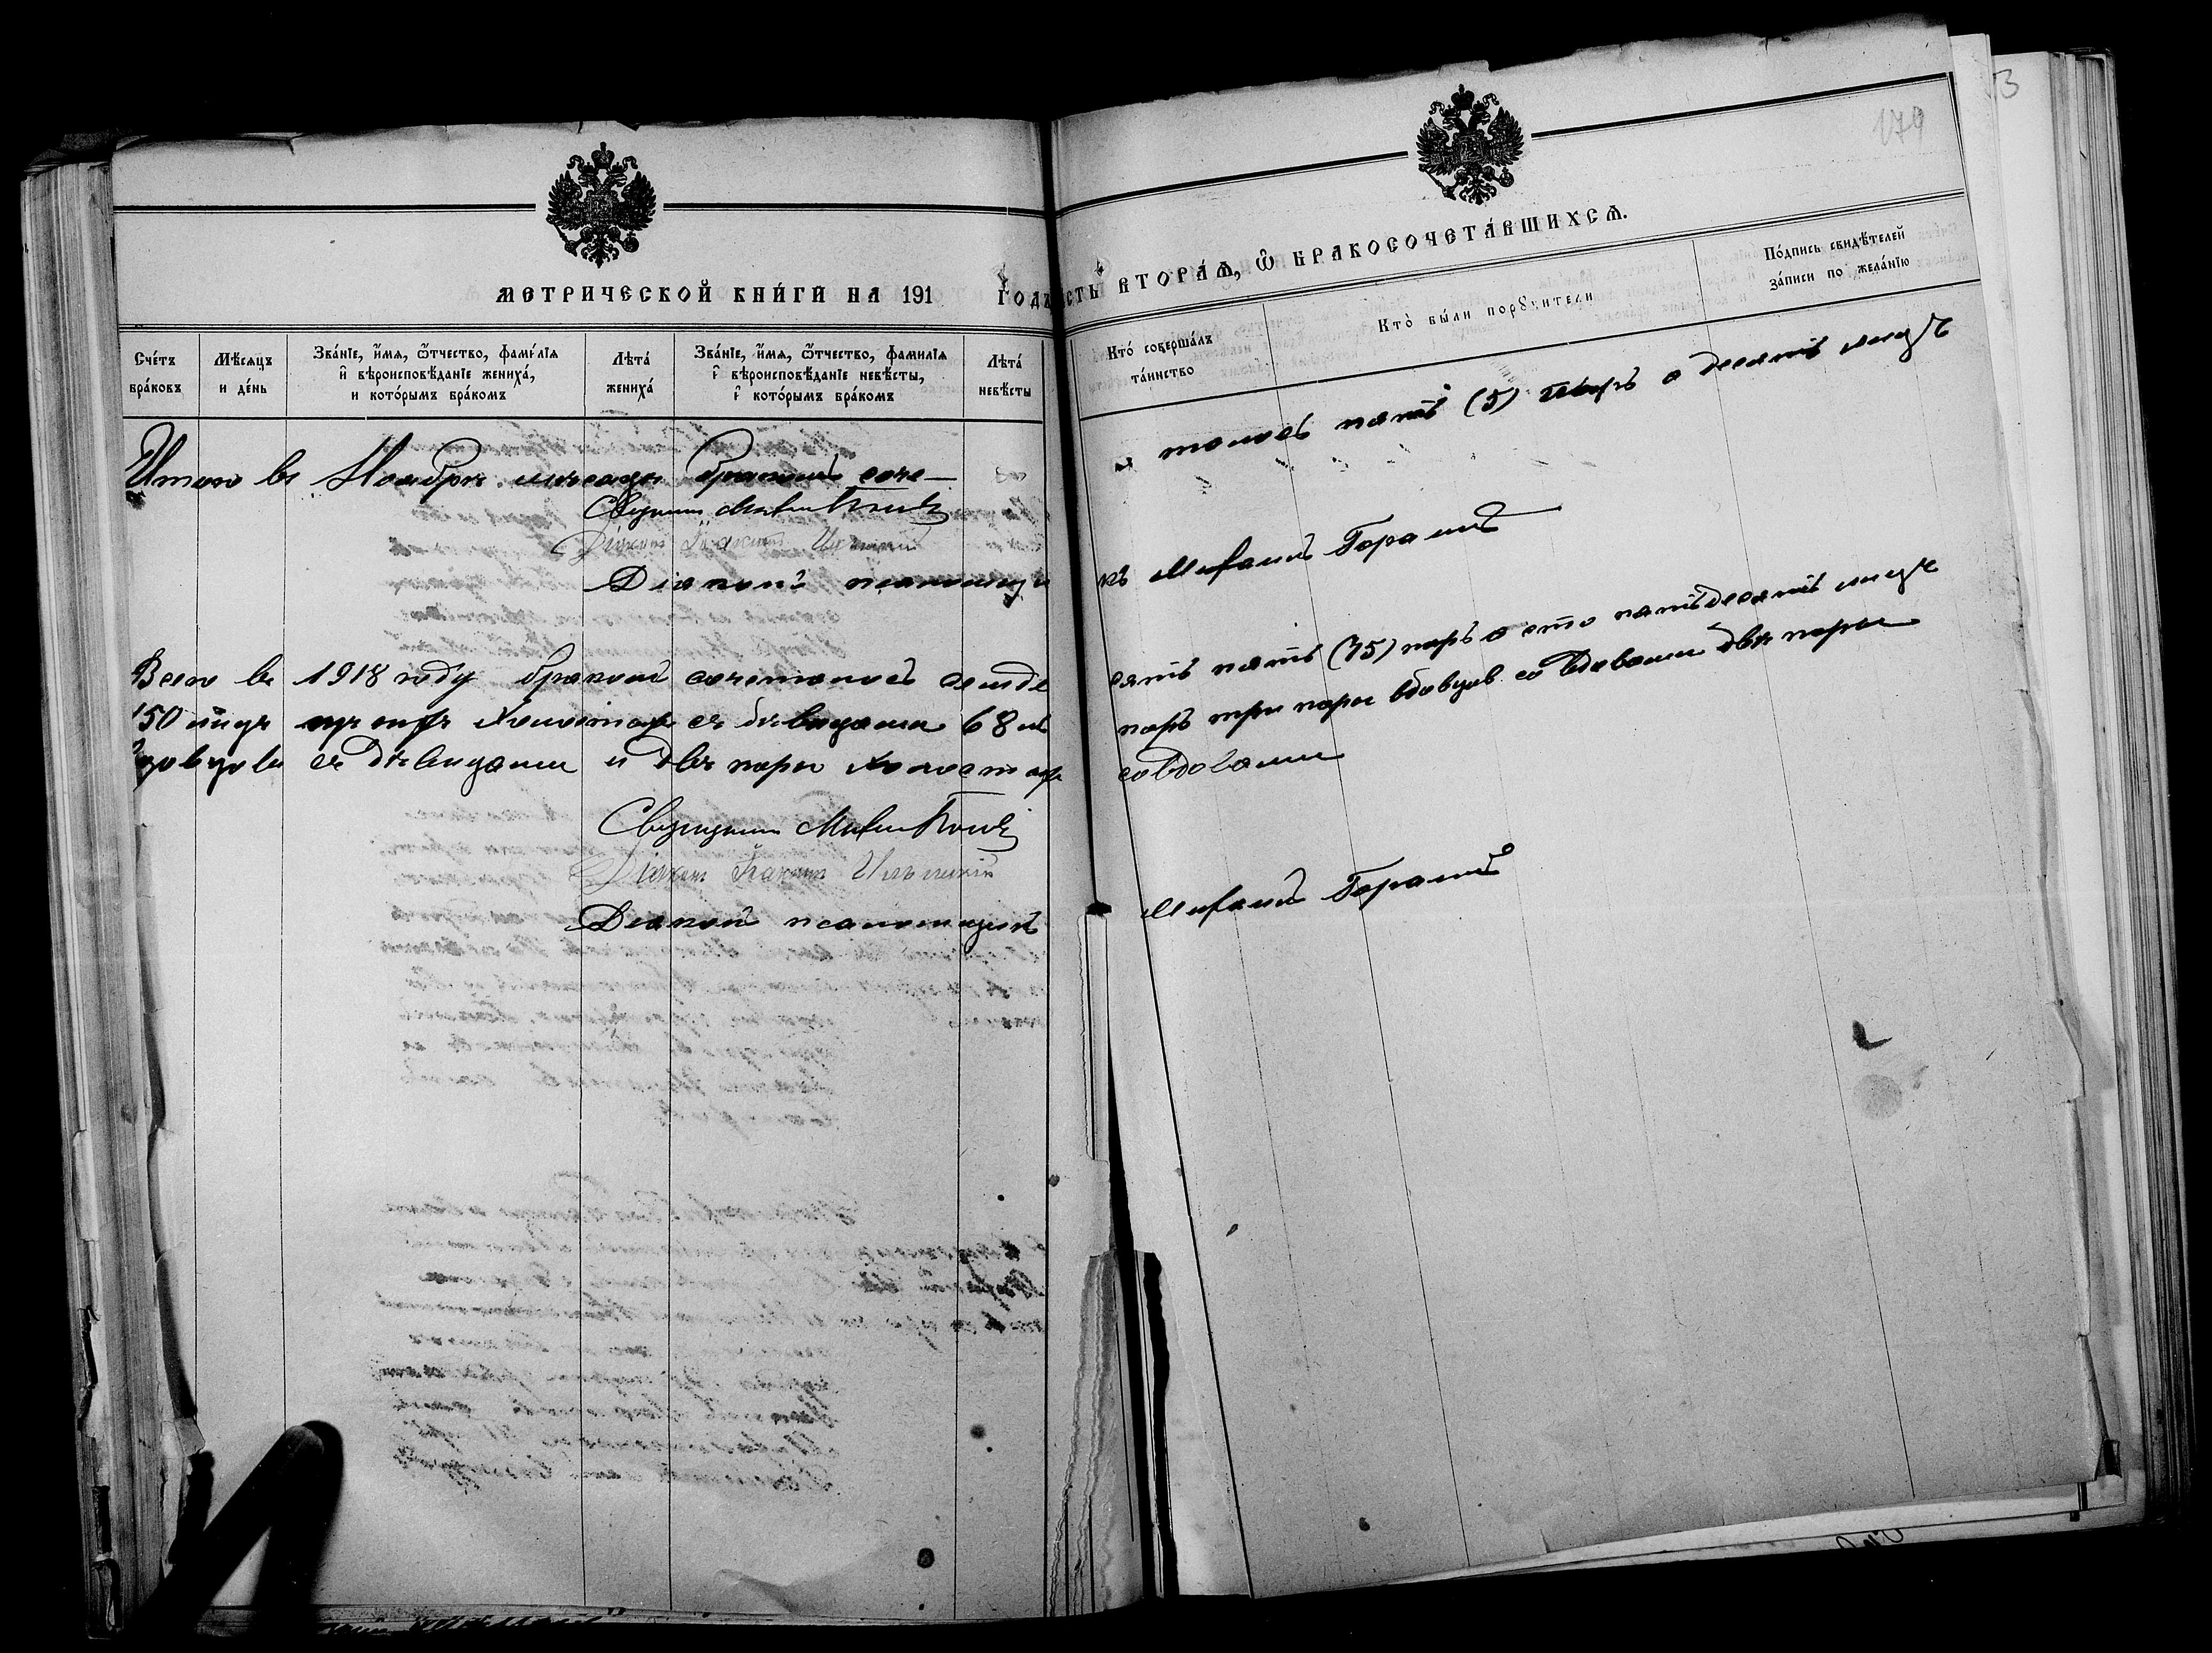 МЕТРИЧЕСКОЙ КНИ́ГИ НА 191 ГОДЪ
СТЬ ВТОРА́Ѧ, Ѽ БРАКОСОЧЕТА́ВШИХСѦ.
179
3
Сче́тъ бра́ковъ
Мѣ́сяцъ и де́нь
Зва́нїе, и́мя, ѻ҆́тчество, фами́лїя и҆ вѣроисповѣ́данїе жениха́, и кото́рымъ бра́комъ
Лѣта́ жениха́
Зва́нїе, и́мя, ѻ҆́тчество, фамилїя и҆ вѣроисповѣ́данїе невѣ́сты, и҆ кото́рымъ бра́комъ
Лѣта́ невѣ́сты
Кто̀ соверша́лъ та́инство
Кто̀ бы́ли порꙋчи́тели
По́дпись свидѣ́телей за́писи по жела́нїю
Итого въ Ноябрѣ мѣсяцѣ бракомъ соче-
талось пять (5) паръ а десять лицъ
Священникъ
Діаконъ
Діаконъ псаломщи
къ Михаилъ
Всего въ 1918 году бракомъ сочеталось семьде
сять пять (75) паръ а сто пятьдесять лицъ
150 лицъ изъ нихъ холостыхъ съ дѣвицами 68
паръ три пары вдовцовъ со вдовами двѣ пары
вдовцовъ съ дѣвицами и двѣ пары холостыхъ
со вдовами
Священникъ
Діаконъ
Діаконъ псаломщикъ
Михаилъ